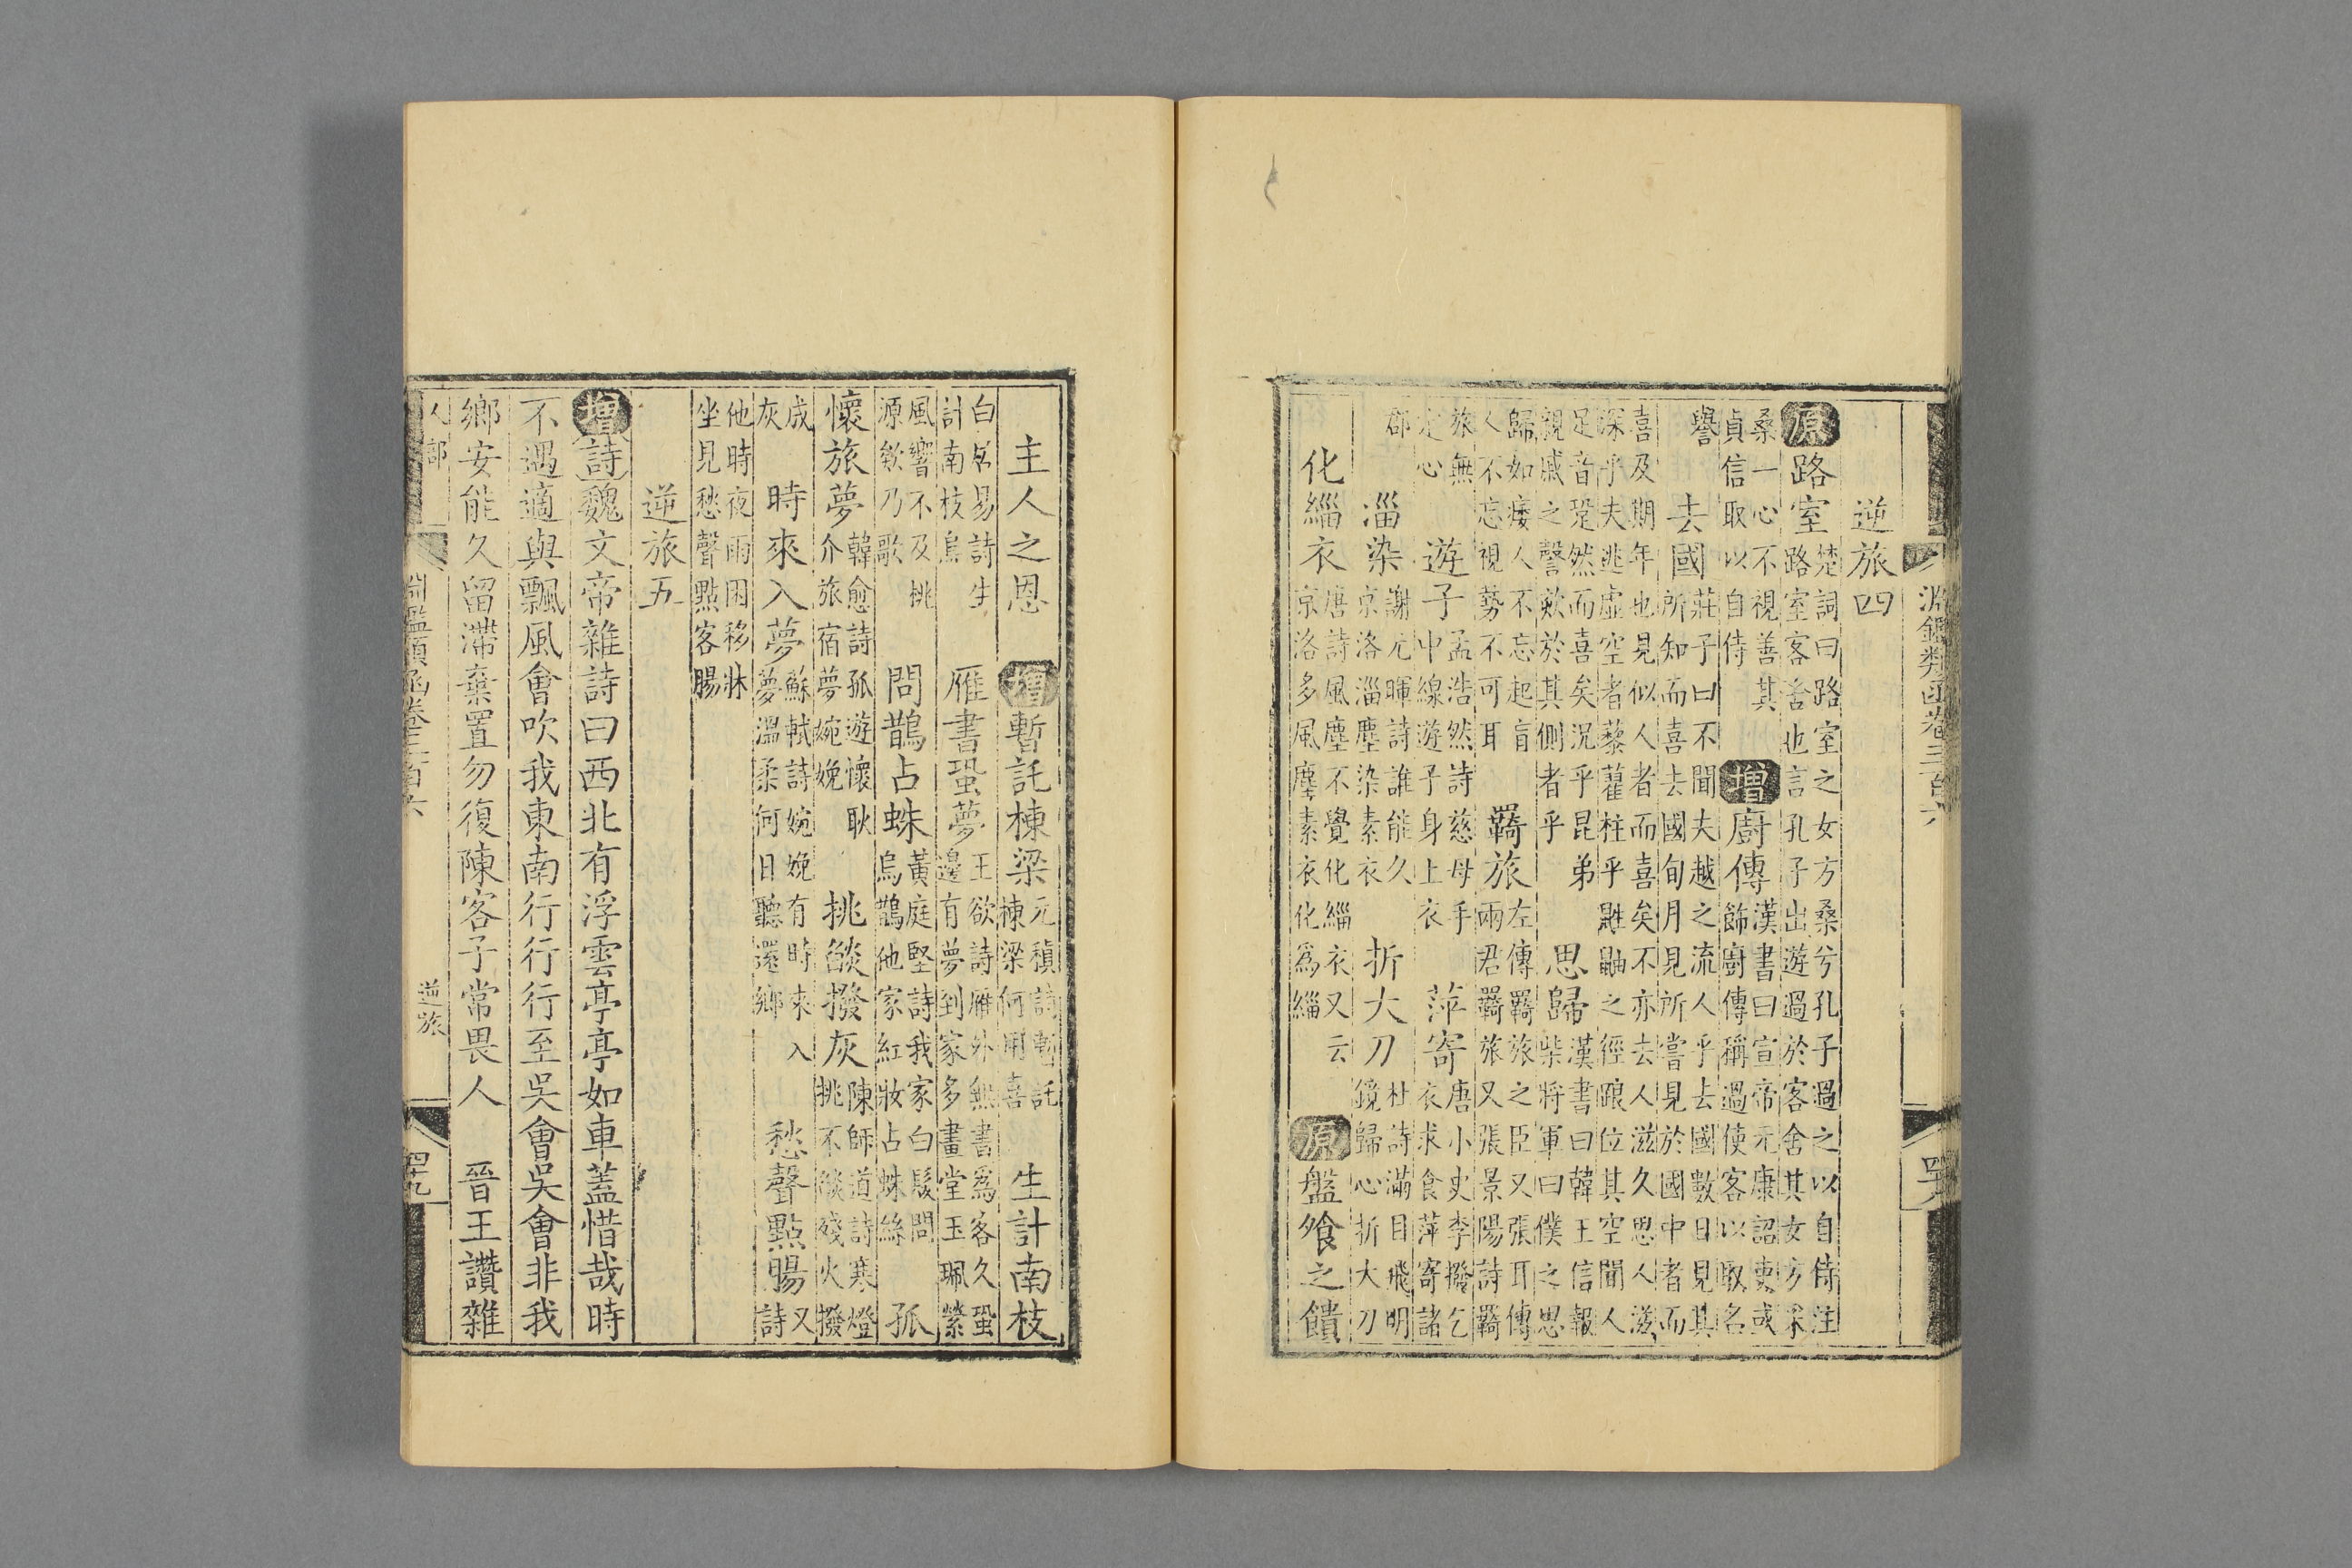 淵鑑類函卷三百六
逆旅四
原路室
楚詞曰路室之女方桑兮孔子過之以自侍注
路室客舍也言孔子出遊過於客舍其女方采
桑一心不視善其
貞信取以自侍
增廚傳
漢書曰宣帝元康詔吏或
飾廚傳稱過使客以取名
譽
去國
莊子曰不聞夫越之流人乎去國數日見其
所知而喜去國旬月見所嘗見於國中者而
喜及期年也見似人者而喜矣不亦去人滋久思人滋
深乎夫逃虛空者藜藿柱乎鼪鼬之徑踉位其空聞人
足音跫然而喜矣況乎昆弟
親戚之謦欬於其側者乎
思歸
漢書曰韓王信報
柴將軍曰僕之思
歸如痿人不忘起盲
人不忘視勢不可耳
羇旅
左傳羇旅之臣又張耳傳
兩君羇旅又張景陽詩羇
旅無
定心
遊子
孟浩然詩慈母手
中線遊子身上衣
萍寄
唐小史李撥乞
衣求食萍寄諸
郡
淄染
謝元暉詩誰能久
京洛淄塵染素衣
折大刀
杜詩滿目飛明
鏡歸心折大刀
化緇衣
唐詩風塵不覺化緇衣又云
京洛多風塵素衣化爲緇
原盤飧之饋
主人之恩
增暫託棟梁
元稹詩暫託
棟梁何用喜
生計南枝
白居易詩生
計南枝烏
雁書蛩夢
王欲詩雁外無書爲客久蛩
邊有夢到家多畫堂玉珮縈
風響不及桃
源欸乃歌
問鵲占蛛
黃庭堅詩我家白髮問
烏鵲他家紅妝占蛛絲
孤
懷旅夢
韓愈詩孤遊懷耿
介旅宿夢婉娩
挑燄撥灰
陳師道詩寒燈
挑不燄殘火撥
成
灰
時來入夢
蘇軾詩婉娩有時來入
夢溫柔何日聽還鄉
愁聲點腸
又
詩
他時夜雨困移牀
坐見愁聲點客腸
逆旅五
增詩魏文帝雜詩曰西北有浮雲亭亭如車蓋惜哉時
不遇適與飄風會吹我東南行行行至吳會吳會非我
鄉安能久留滯棄置勿復陳客子常畏人　晉王讚雜
人部
淵鑑類函卷三百六
逆旅
四九